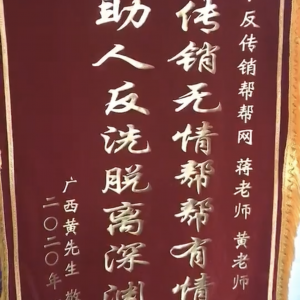 反传销帮帮网 蒋老师 黄老师
传销无情帮帮有情
助人反洗脱离深渊
广西黄先生 敬
二〇二〇年